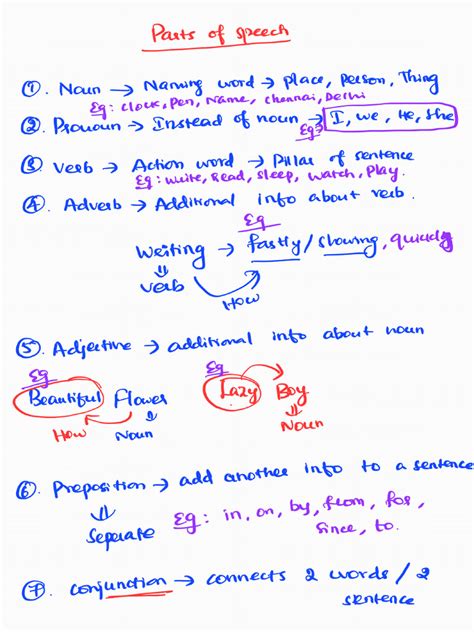 Parts of speech
①. Noun → Naming word → place, Person, Thing
Eg: clock, Pen, Name, Chennai, Delhi
②. Pronoun → Instead of noun → I, we, He, She
Eg
③. Verb → Action word → Pillar of sentence
Eg: write, Read, sleep, watch, Play.
④. Adverb → Additional info about verb.
Eg
Writing → fastly/slowing, quickly
verb
How
⑤. Adjective → additional info about noun
Eg Eg
Beautiful Flower Lazy Boy
How Noun Noun
⑥. Preposition → add another info to a sentence
Seperate Eg: in, on, by, from, for,
since, to.
⑦. conjunction → connects 2 words / 2
sentence